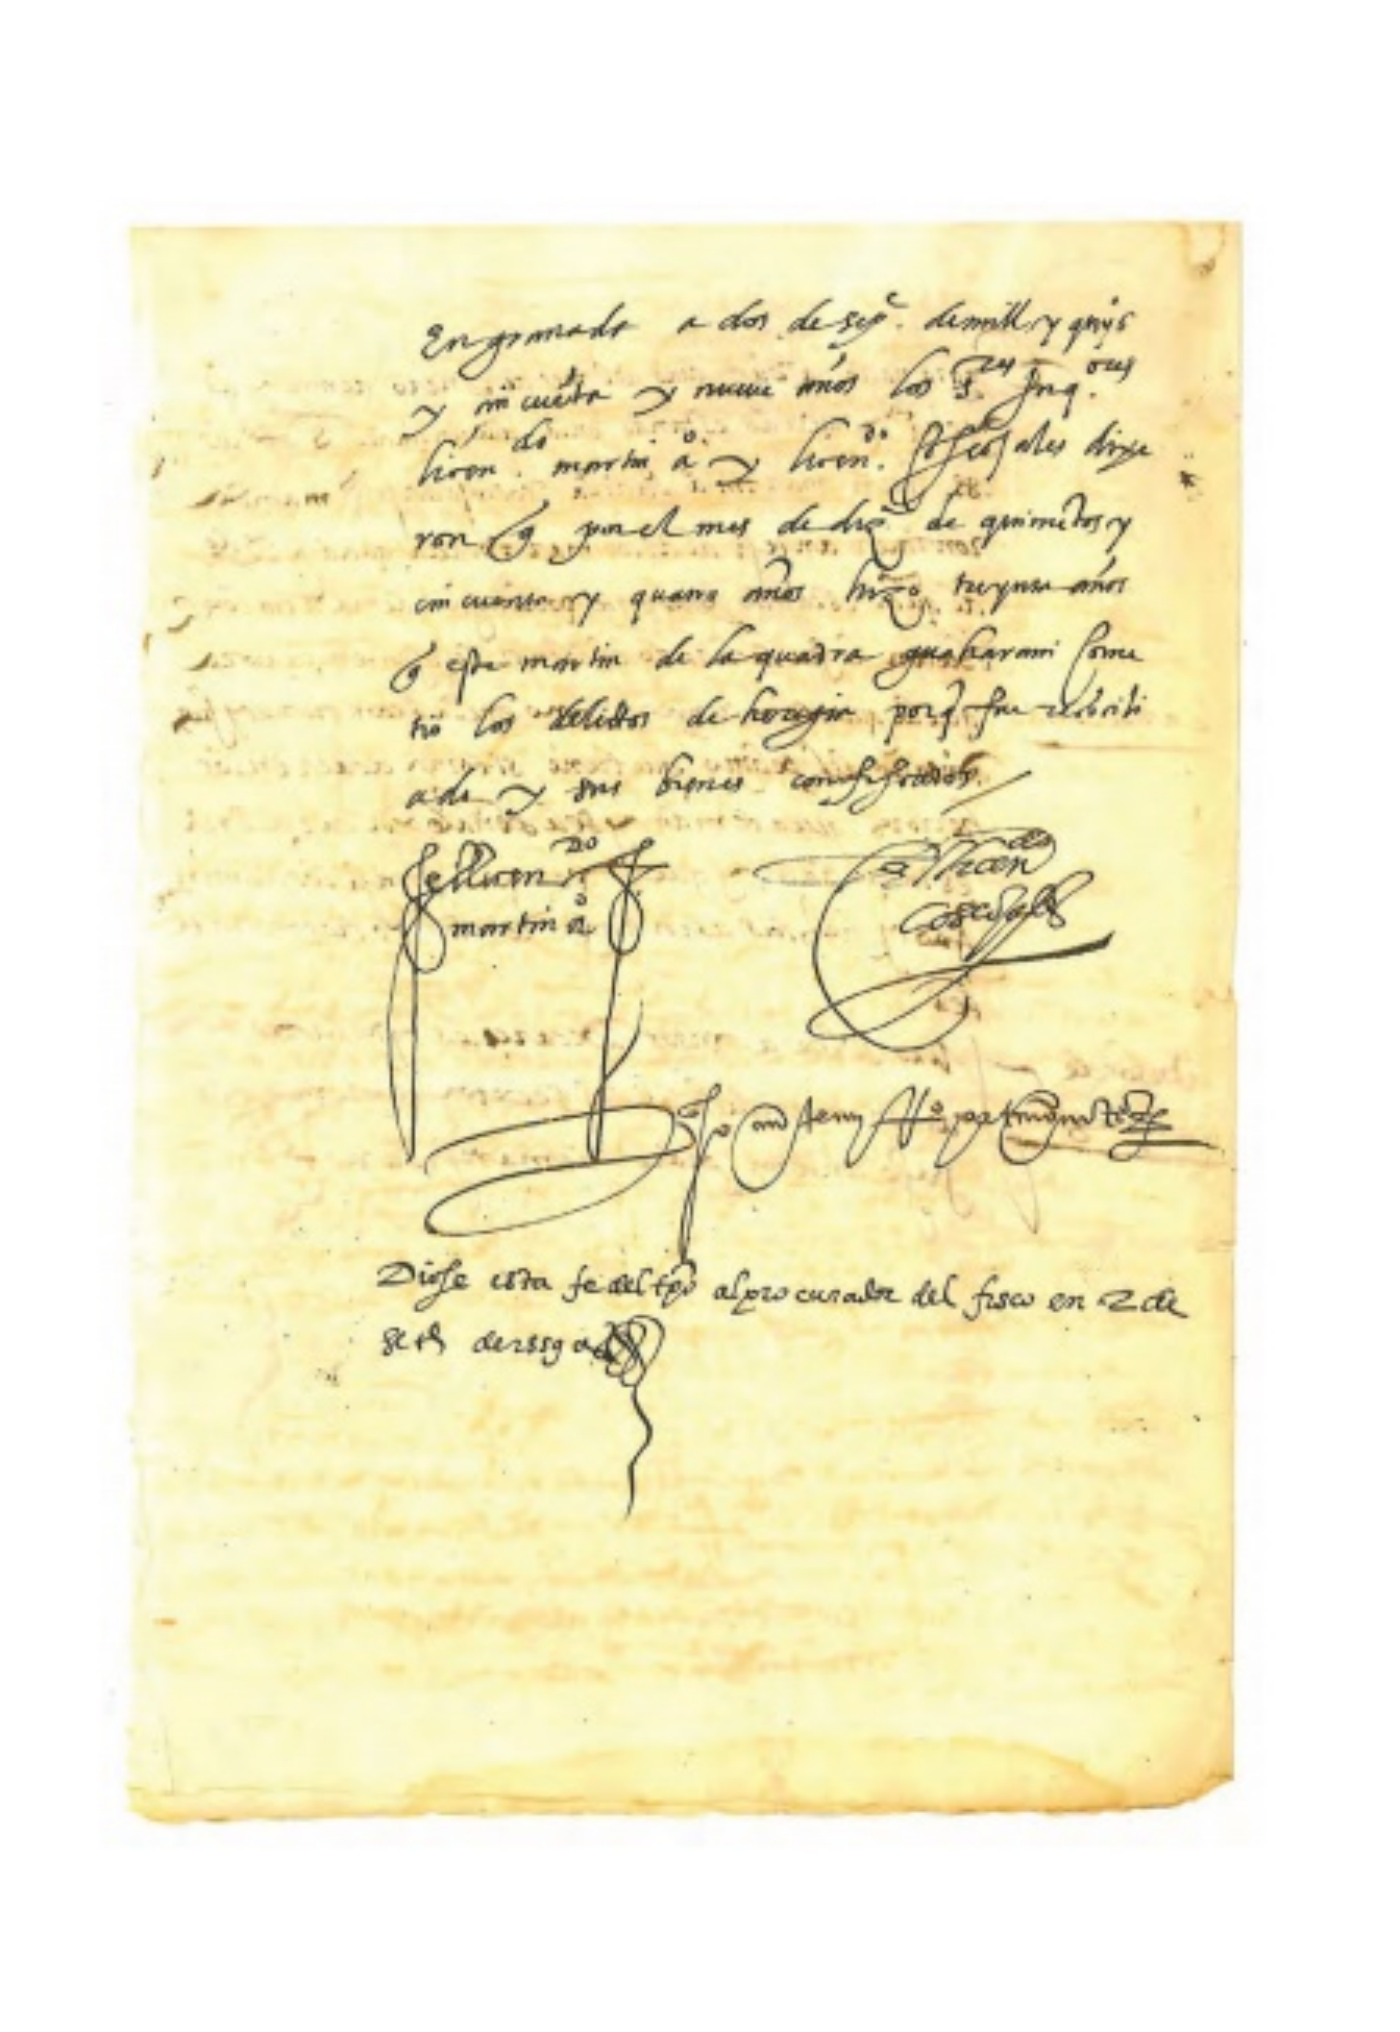 En granada a dos de sepe. de mill y quis
y cincueta y nueue años los s.res Inq.ores
licen.do martin a.o y licen.do coscojales dixe
ron q por el mes de dize de quinietos y
cincuenta y quatro años hizo treynta años
q este martin de la quadra guaharani come
tio los delictos de heregia porq fue reconcili
ado y sus bienes confiscados.
el licen.do
martin a.o
el licen.do
coscojales
paso ante my
Diose esta fe del tpo al procurador del fisco en 2 de
set.e de 1559 a.os